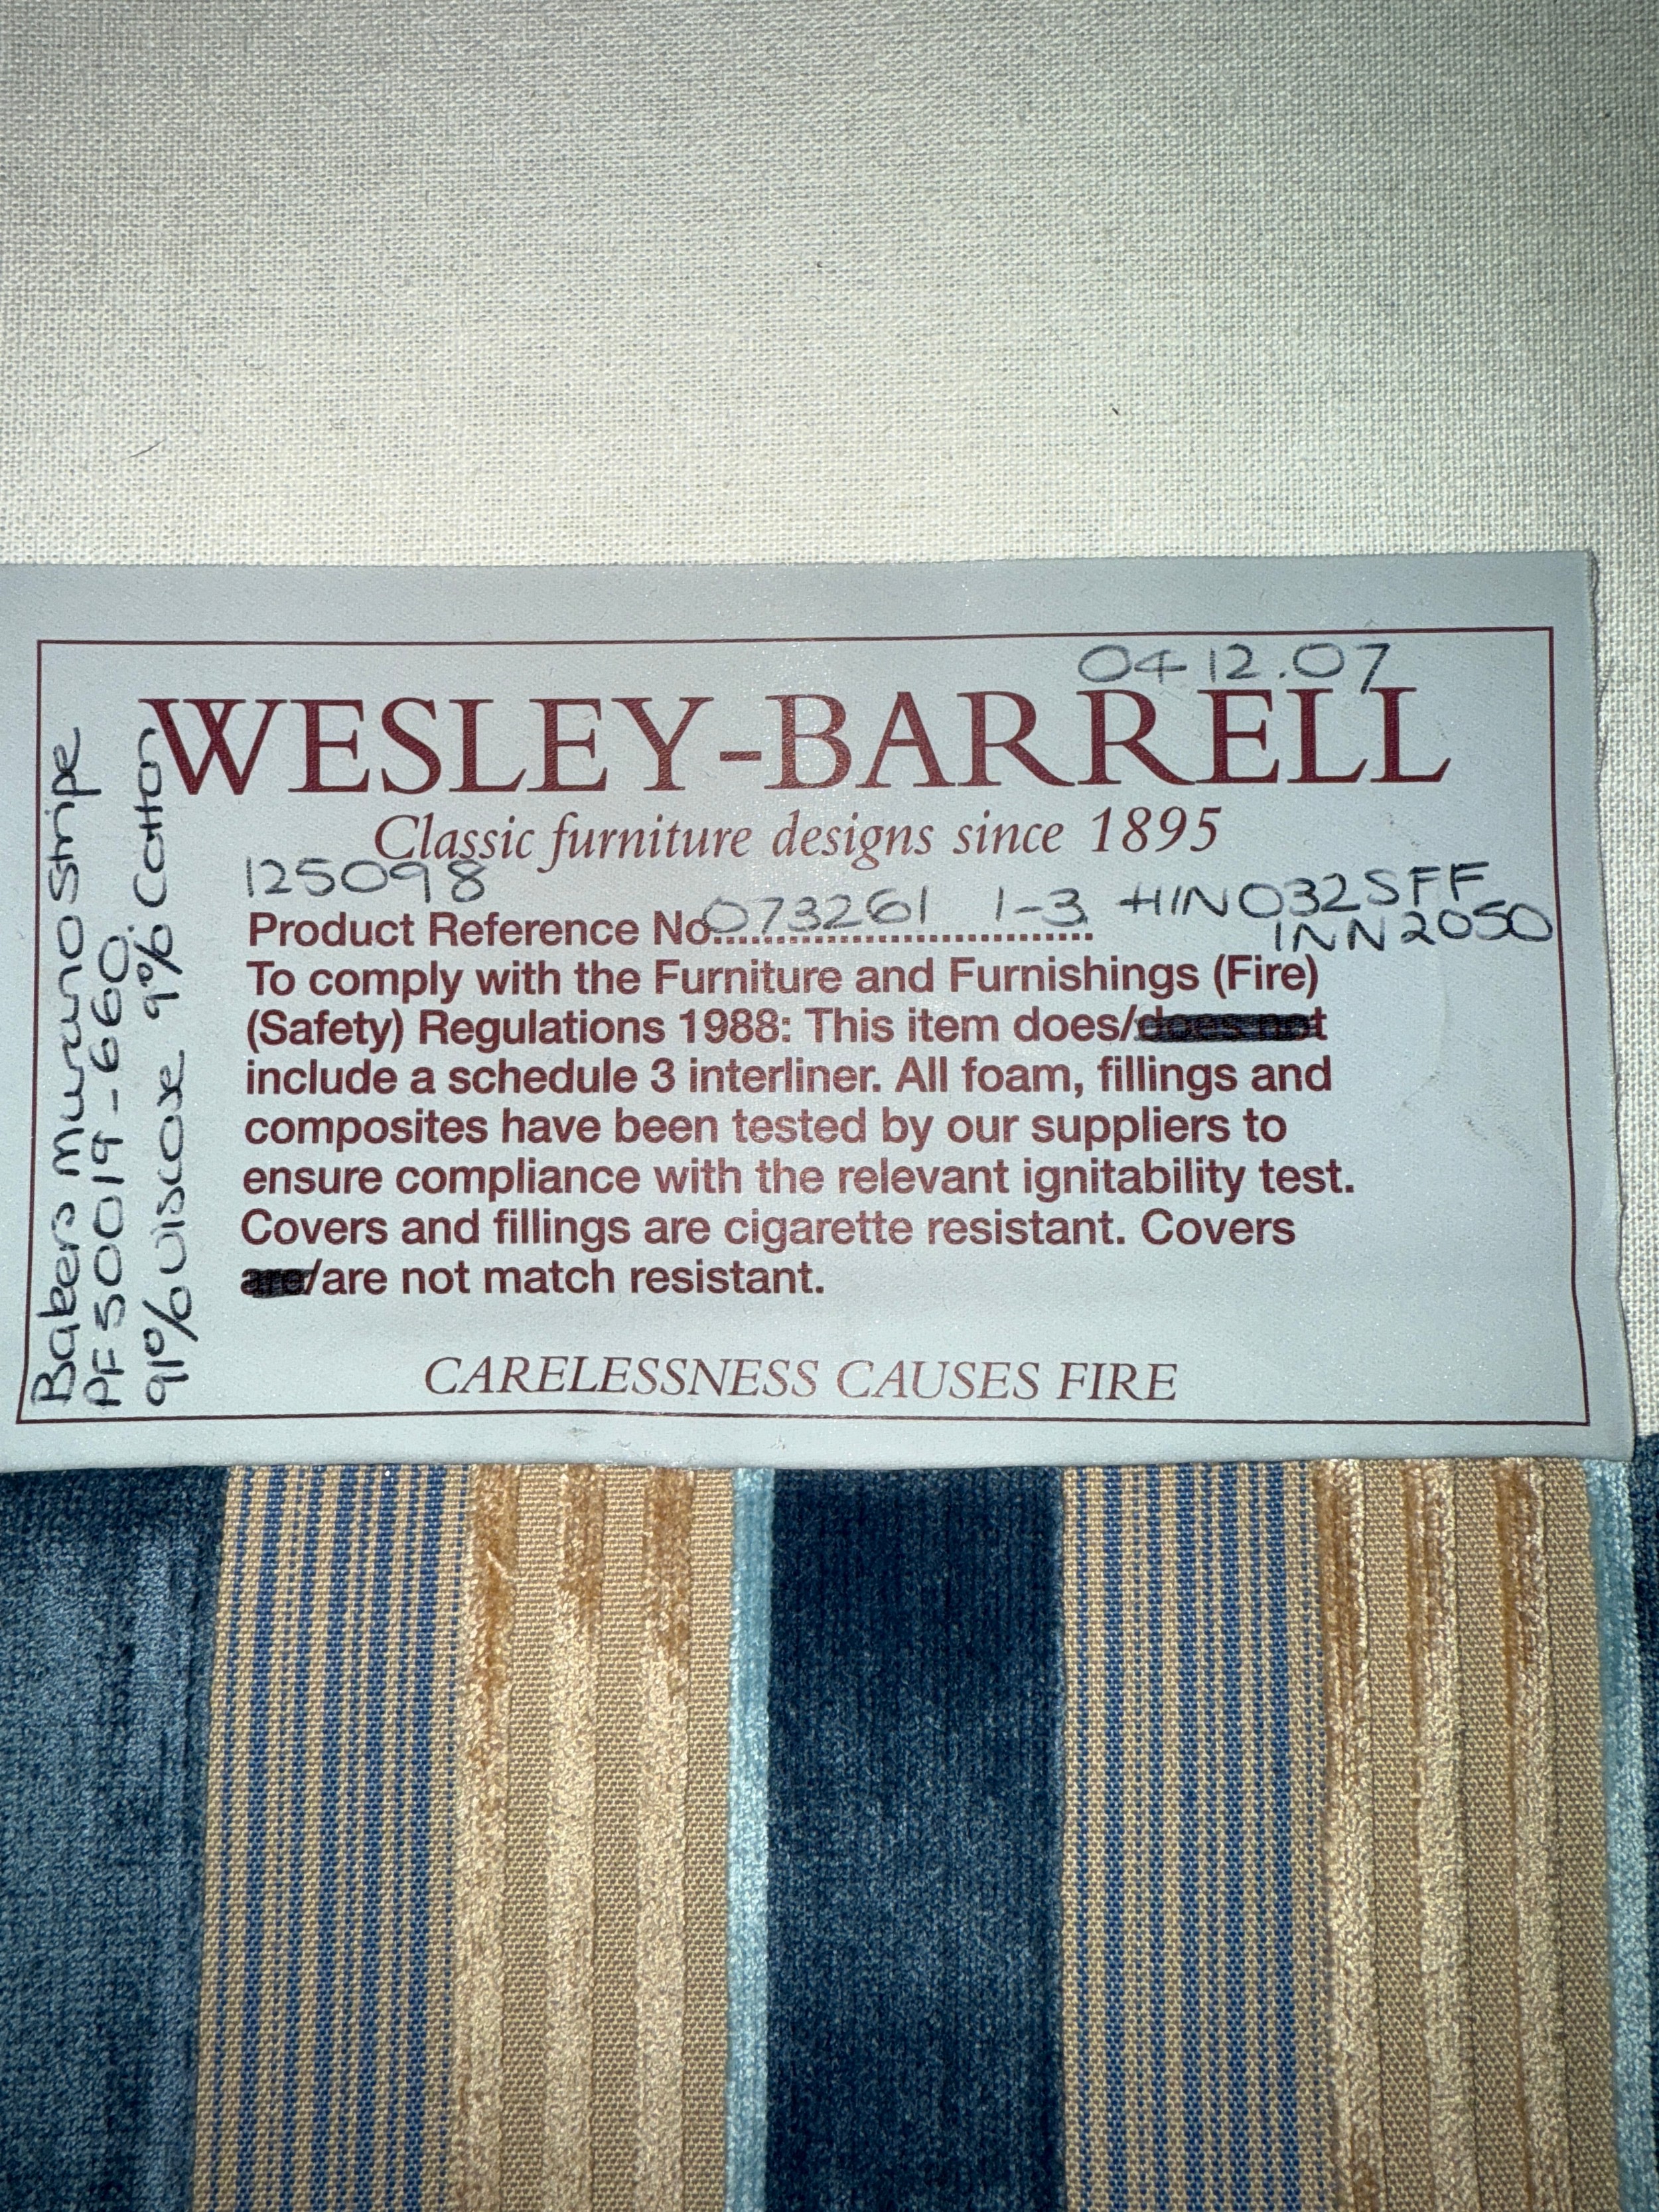 04.12.07
WESLEY-BARRELL
Classic furniture designs since 1895
125098
Product Reference No. 073261 1-3 HIN032SFF
INN2050
To comply with the Furniture and Furnishings (Fire)
(Safety) Regulations 1988: This item does/does not
include a schedule 3 interliner. All foam, fillings and
composites have been tested by our suppliers to
ensure compliance with the relevant ignitability test.
Covers and fillings are cigarette resistant. Covers
are/are not match resistant.
CARELESSNESS CAUSES FIRE
Bakers Murano Stripe
PF50019-660.
91% Viscose 9% Cotton